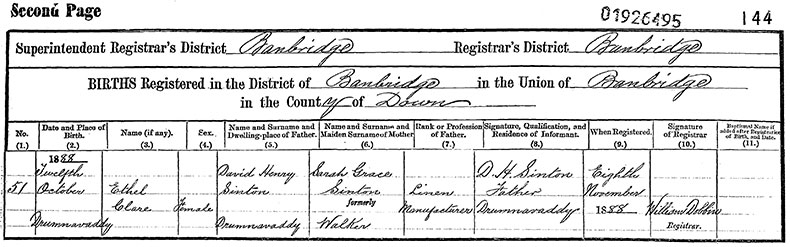 Second Page
01926495
144
Superintendent Registrar's District Banbridge Registrar's District Banbridge
BIRTHS Registered in the District of Banbridge in the Union of Banbridge
in the County of Down
No. (1.)
Date and Place of Birth. (2.)
Name (if any). (3.)
Sex. (4.)
Name and Surname and Dwelling-place of Father. (5.)
Name and Surname and Maiden Surname of Mother (6.)
Rank or Profession of Father. (7.)
Signature, Qualification, and Residence of Informant. (8.)
When Registered. (9.)
Signature of Registrar (10.)
Baptismal Name if added after Registration of Birth, and Date. (11.)
51
1888
Twelfth
October
Drumnavaddy
Ethel
Clare
Female
David Henry
Sinton
Drumnavaddy
Sarah Grace
Sinton
formerly
Walker
Linen
Manufacturer
D. H. Sinton
Father
Drumnavaddy
Eighth
November
1888
William Dobbin
Registrar.